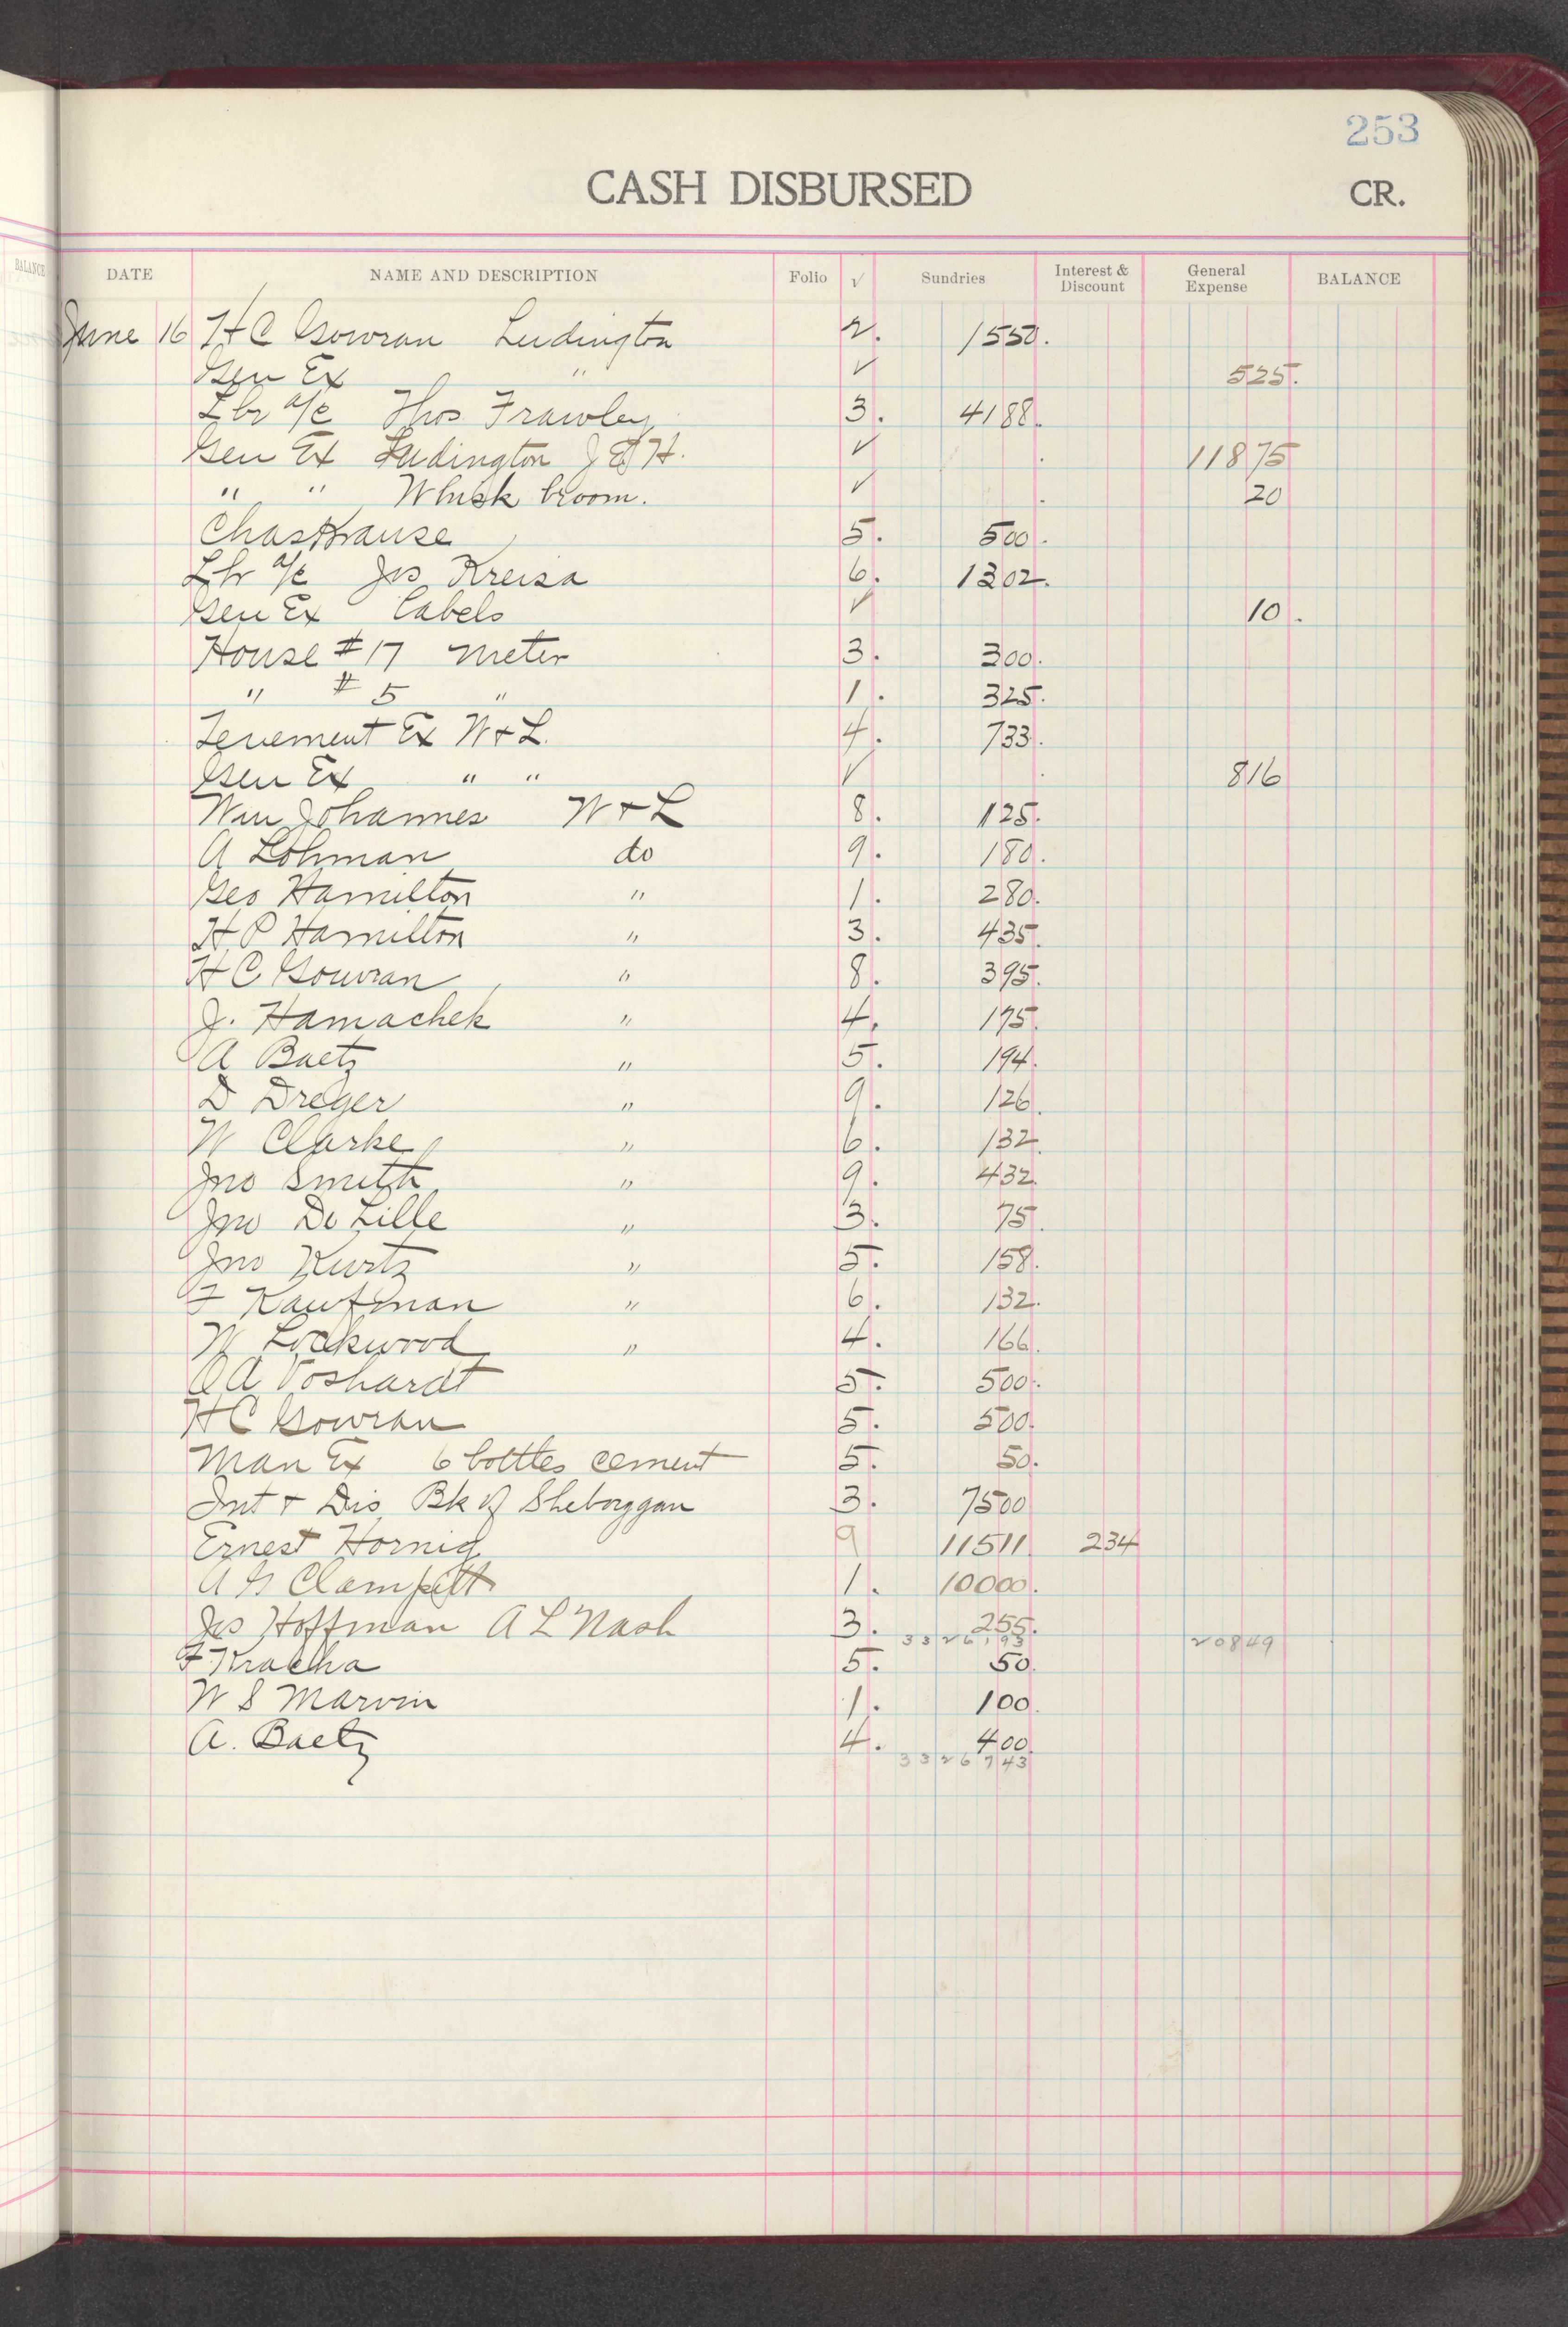 253
CASH DISBURSED CR.
BALANCE
DATE NAME AND DESCRIPTION Folio √ Sundries Interest & Discount General Expense BALANCE
June 16 H C Gowran Ludington 2. 1550.
Gen Ex " ✓ 525.
Lbr a/c Thos Frawley 3. 4188.
Gen Ex Ludington J E H. ✓ 11875
" " Whisk broom. ✓ 20
Chas Krause 5. 500.
Lbr a/c Jos Kreisa 6. 1302.
Gen Ex Cabels ✓ 10.
House # 17 Meter 3. 300.
" # 5 " 1. 325.
Tenement Ex W + L. 4. 733.
Gen Ex " " ✓ 816
Wm Johannes W + L 8. 125.
A Lohman do 9. 180.
Geo Hamilton " 1. 280.
H P Hamilton " 3. 435.
H C Gowran " 8. 395.
J. Hamachek " 4. 175.
A Baetz " 5. 194.
D Dreger " 9. 126.
W Clarke " 6. 132.
Jno Smith " 9. 432.
Jno De Lille " 3. 75.
Jno Kurtz " 5. 158.
F Kaufman " 6. 132.
W Lockwood " 4. 166.
O A Voshardt 5. 500.
H C Gowran 5. 500.
Man Ex 6 bottles cement 5. 50.
Int + Dis Bk of Sheboygan 3. 7500
Ernest Hornig 9 11511 234
A G Clampitt 1. 10000.
Jos Hoffman A L Nash 3. 255.
3326193 20849
F Kracha 5. 50.
W S Marvin 1. 100.
A. Baetz 4. 400.
3326743